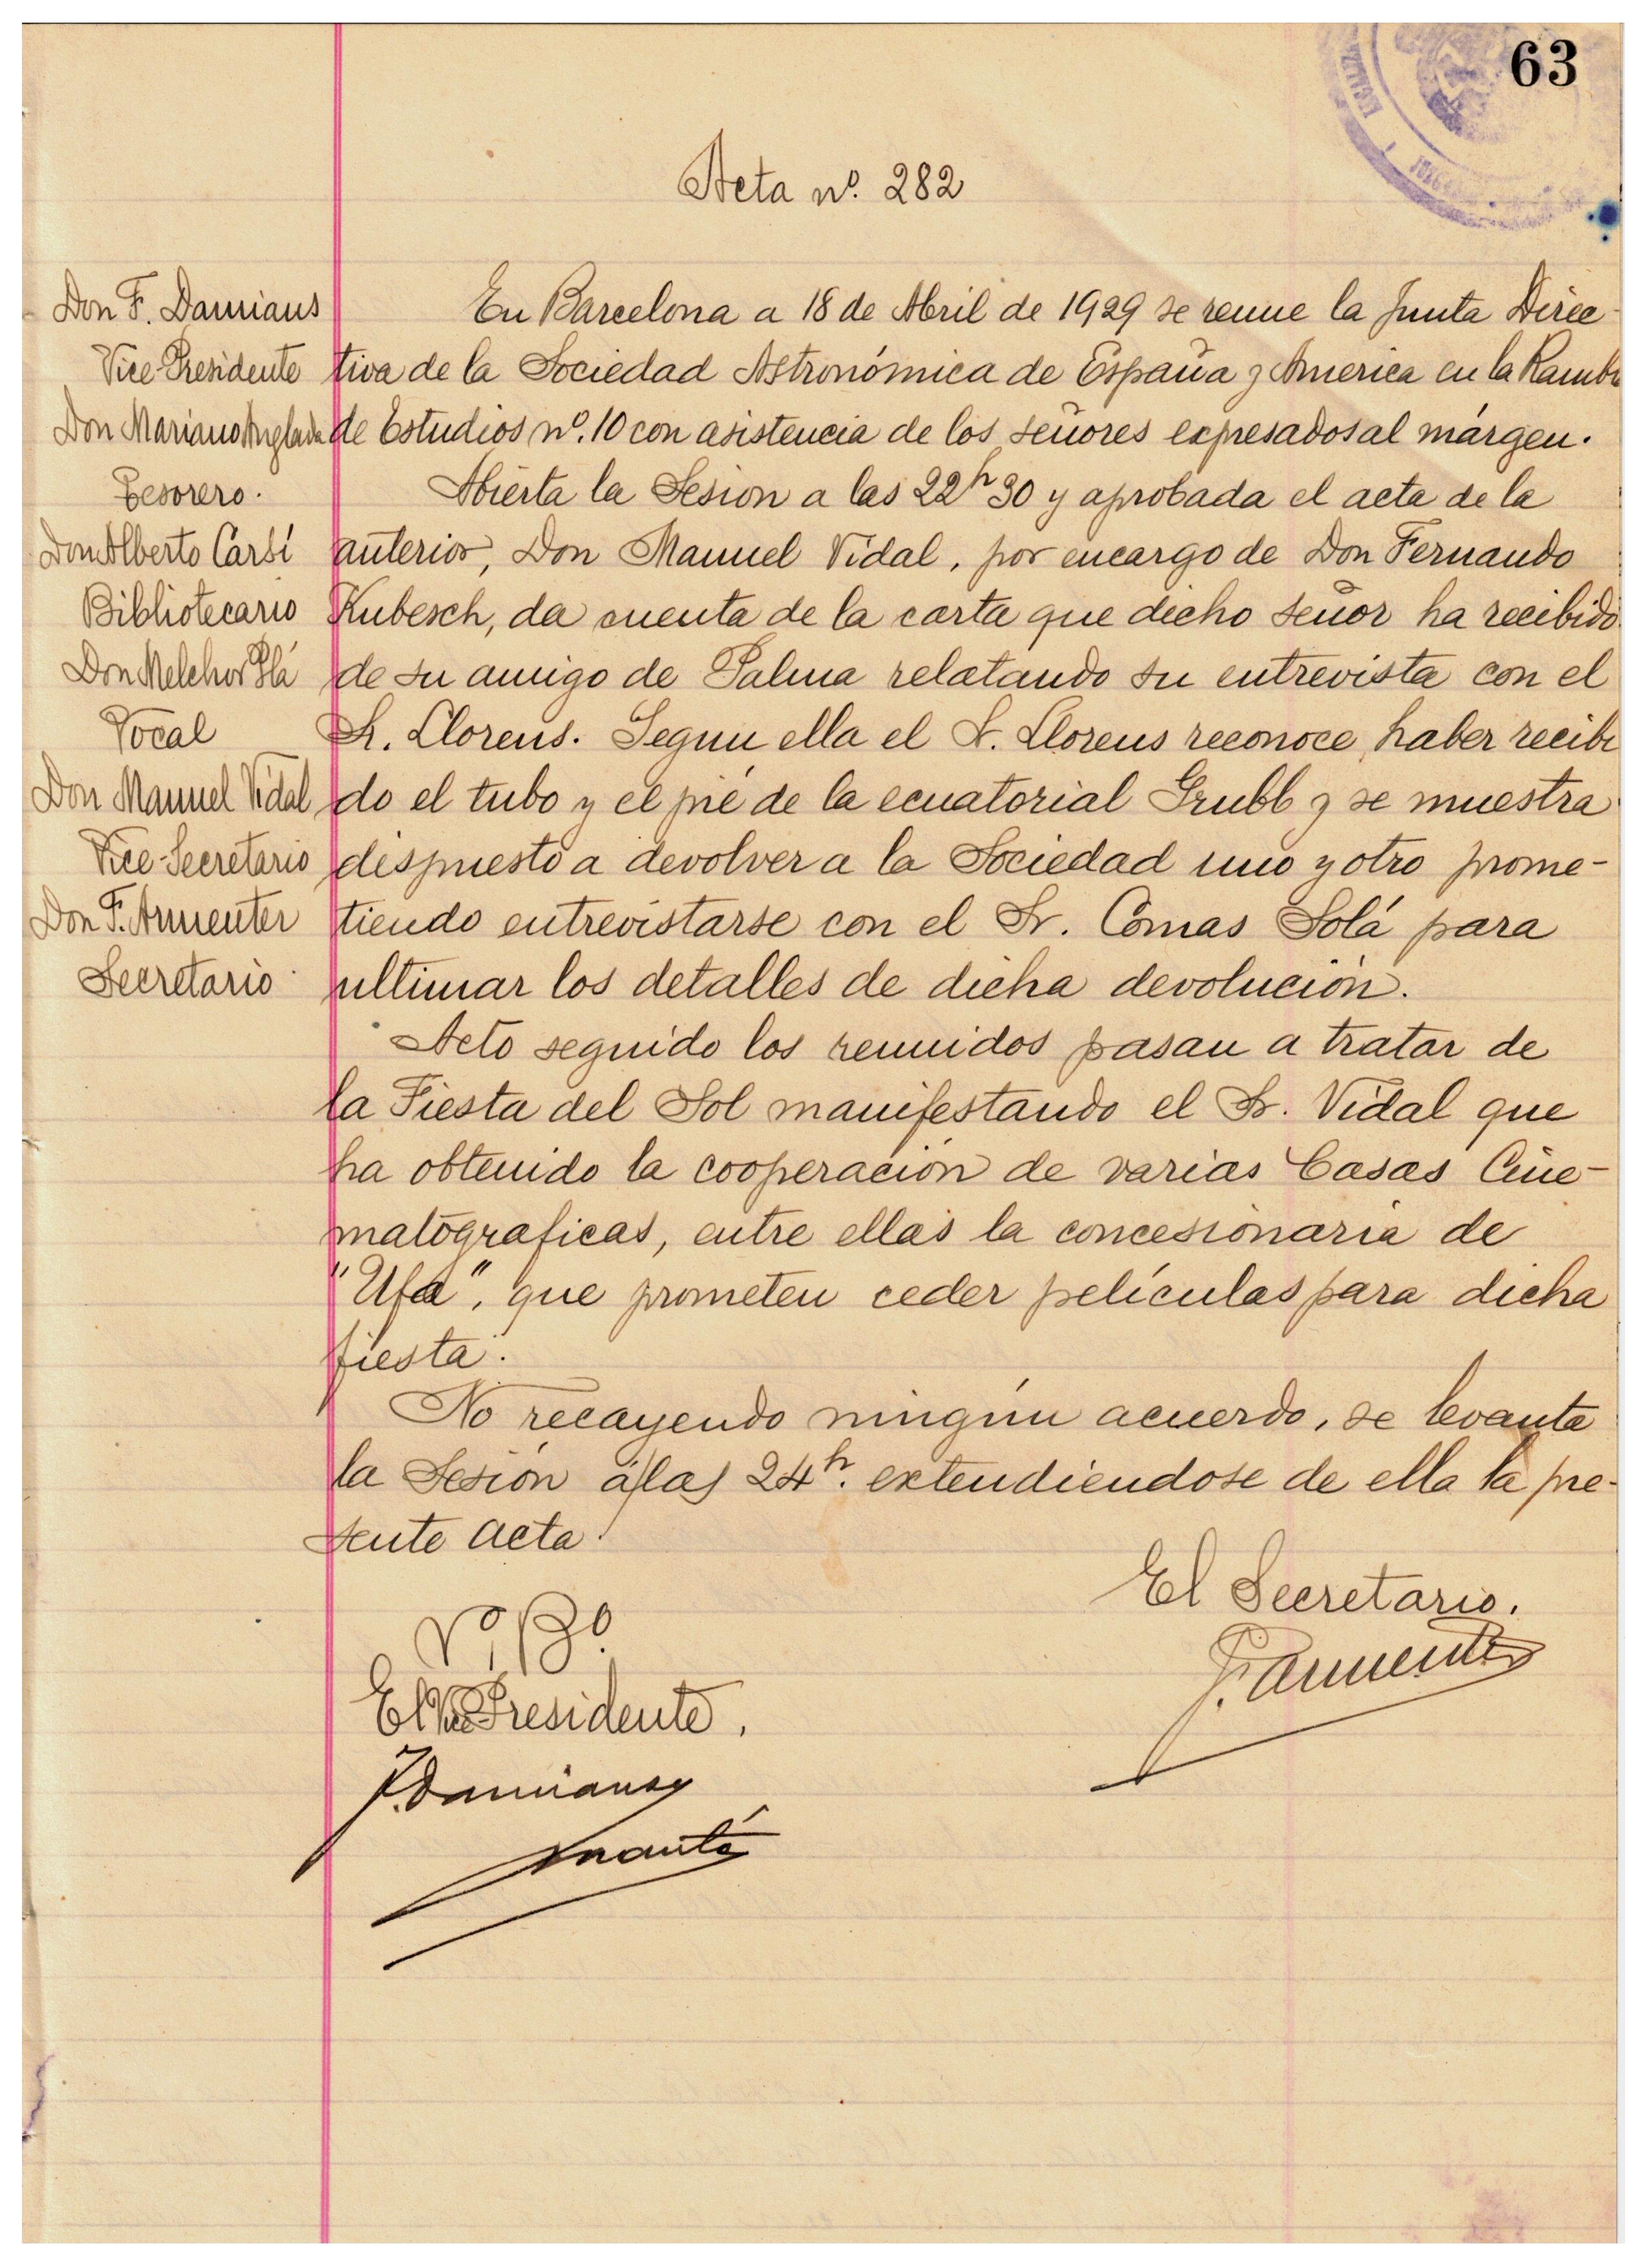 63
Acta nº. 282
Don F. Damians
Vice Presidente
Don Mariano Anglada
Tesorero.
Don Alberto Carsí
Bibliotecario
Don Melchor Plá
Vocal
Don Manuel Vidal
Vice-Secretario
Don F. Armenter
Secretario
En Barcelona a 18 de Abril de 1929 se reune la Junta Direc-
tiva de la Sociedad Astronómica de España y America en la Rambla
de Estudios nº. 10 con asistencia de los señores expresados al márgen.
Abierta la Sesion a las 22h 30 y aprobada el acta de la
anterior, Don Manuel Vidal, por encargo de Don Fernando
Kubesch, da cuenta de la carta que dicho señor ha recibido
de su amigo de Palma relatando su entrevista con el
Sr. Llorens. Segun ella el Sr. Llorens reconoce haber recibi
do el tubo y el pié de la ecuatorial Grubb y se muestra
despuesto a devolver a la Sociedad uno y otro prome-
tiendo entrevistarse con el Sr. Comas Solá para
ultimar los detalles de dicha devolución.
Acto seguido los reunidos pasan a tratar de
la Fiesta del Sol manifestando el Sr. Vidal que
ha obtenido la cooperación de varias Casas Cine-
matograficas, entre ellas la concesionaria de
"Ufa", que prometen ceder películas para dicha
fiesta.
No recayendo ningún acuerdo, se levanta
la Sesión a las 24h. extendiendose de ella la pre-
sente acta.
El Secretario.
F. Armenter
Vº. Bº.
El Vice Presidente.
F. Damians y